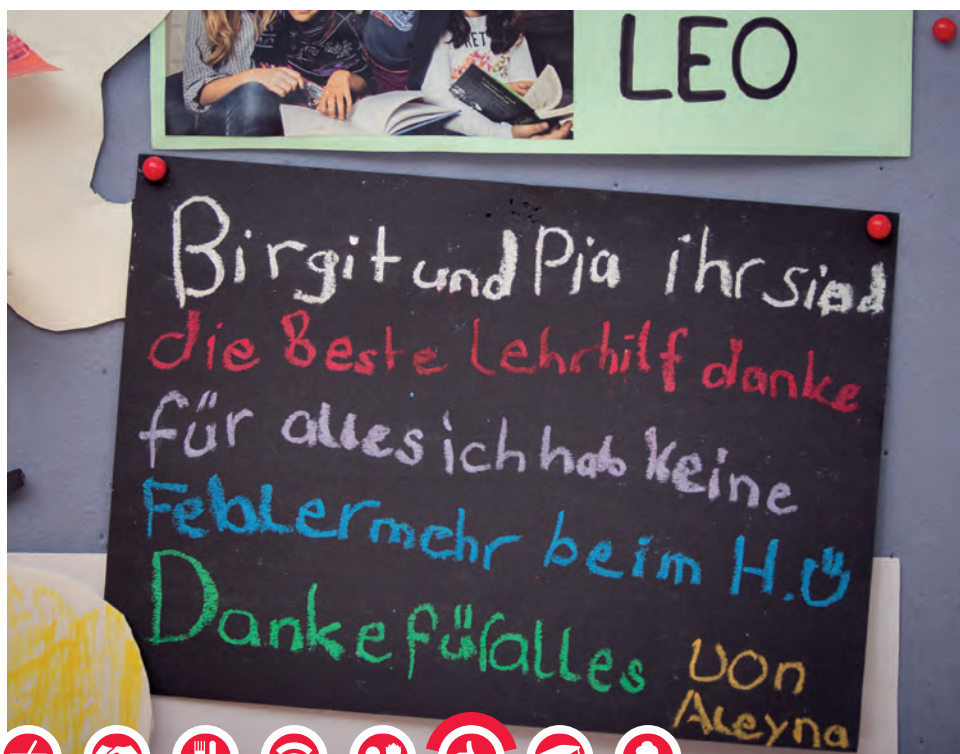 LEO
Birgit und Pia ihr sind
die Beste Lehrhilf danke
für alles ich hab keine
Fehler mehr beim H.Ü
Danke für alles von
Aleyna